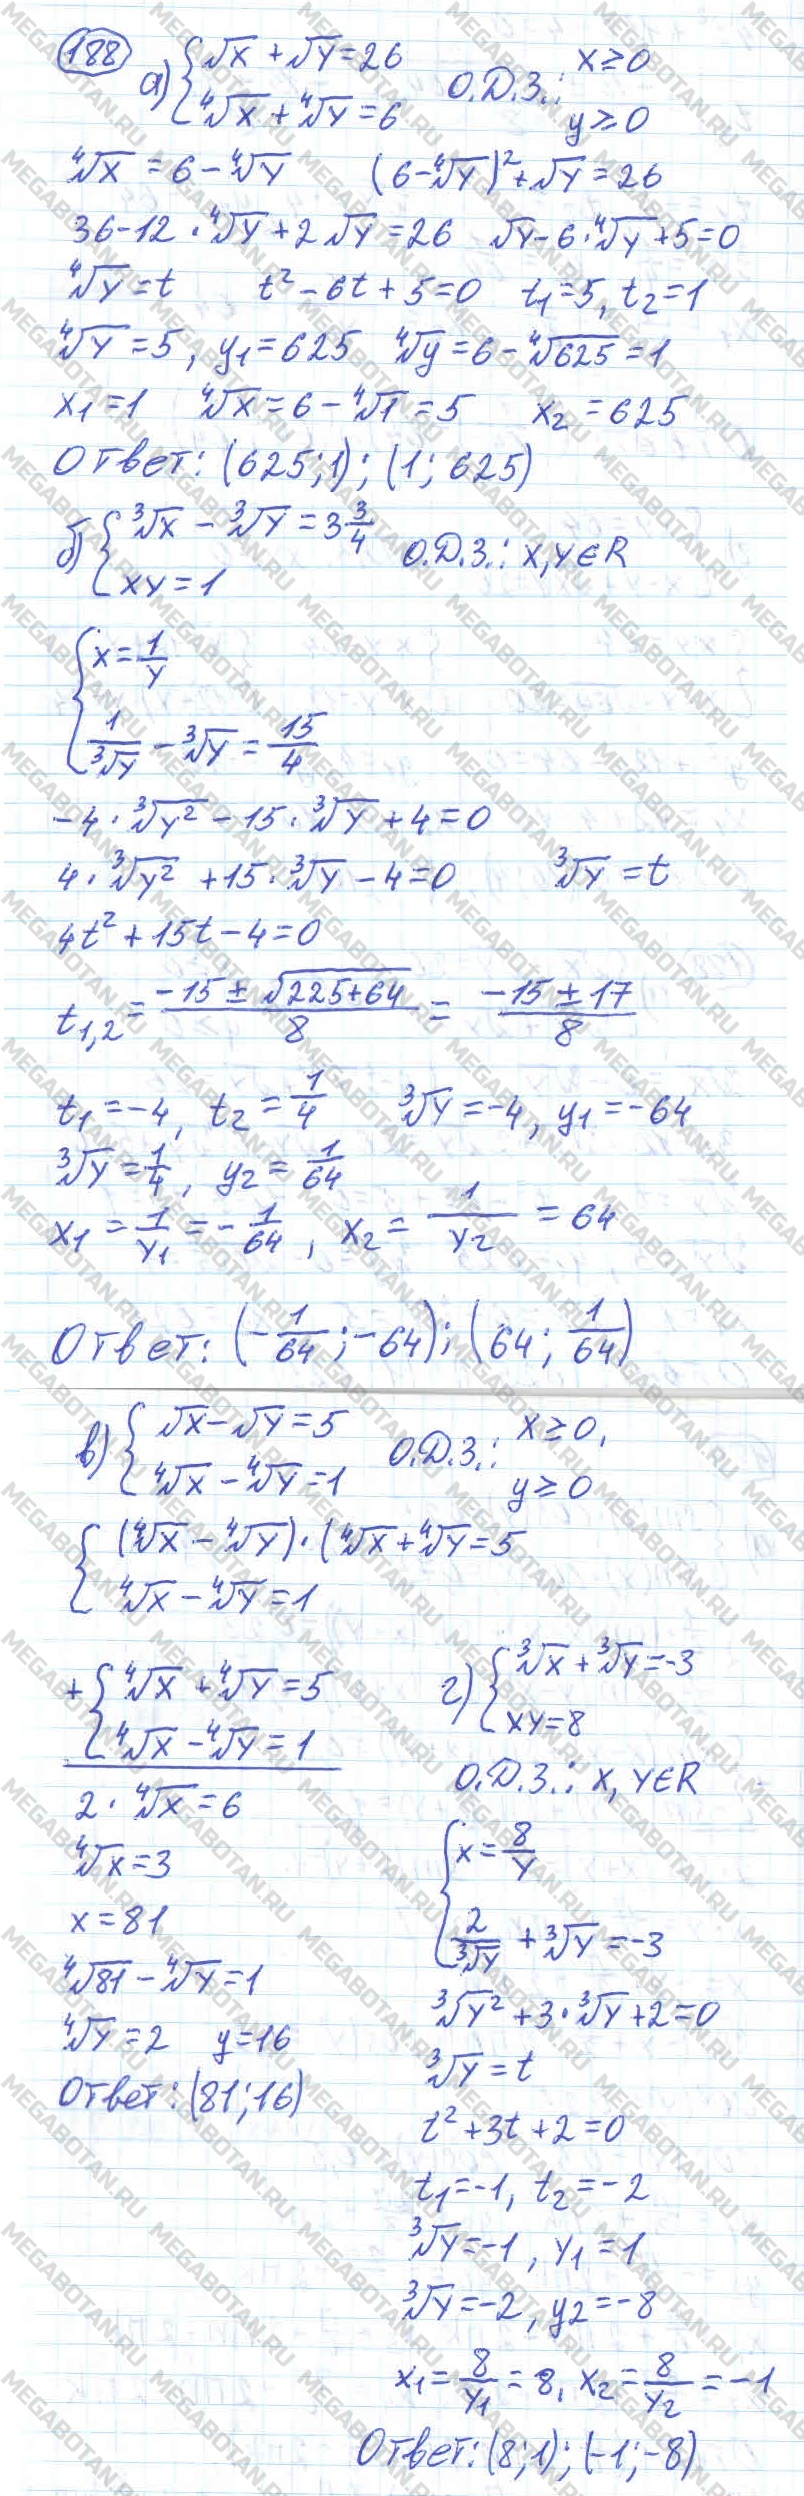 188
а) {√x + √y = 26
∜x + ∜y = 6
О.Д.З.: x ≥ 0
y ≥ 0
∜x = 6 - ∜y (6 - ∜y)² + √y = 26
36 - 12 · ∜y + 2√y = 26 √y - 6 · ∜y + 5 = 0
∜y = t t² - 6t + 5 = 0 t₁ = 5, t₂ = 1
∜y = 5, y₁ = 625 ∜y = 6 - ∜625 = 1
x₁ = 1 ∜x = 6 - ∜1 = 5 x₂ = 625
Ответ: (625; 1); (1; 625)
б) {∛x - ∛y = 3 3/4
xy = 1
О.Д.З.: x, y ∈ R
{x = 1/y
1/∛y - ∛y = 15/4
-4 · ∛y² - 15 · ∛y + 4 = 0
4 · ∛y² + 15 · ∛y - 4 = 0 ∛y = t
4t² + 15t - 4 = 0
t₁,₂ = (-15 ± √225+64)/8 = (-15 ± 17)/8
t₁ = -4, t₂ = 1/4 ∛y = -4, y₁ = -64
∛y = 1/4, y₂ = 1/64
x₁ = 1/y₁ = -1/64, x₂ = 1/y₂ = 64
Ответ: (-1/64; -64); (64; 1/64)
в) {√x - √y = 5
∜x - ∜y = 1
О.Д.З.: x ≥ 0,
y ≥ 0
{(∜x - ∜y) · (∜x + ∜y = 5
∜x - ∜y = 1
+ {∜x + ∜y = 5
∜x - ∜y = 1
2 · ∜x = 6
∜x = 3
x = 81
∜81 - ∜y = 1
∜y = 2 y = 16
Ответ: (81; 16)
г) {∛x + ∛y = -3
xy = 8
О.Д.З.: x, y ∈ R
{x = 8/y
2/∛y + ∛y = -3
∛y² + 3 · ∛y + 2 = 0
∛y = t
t² + 3t + 2 = 0
t₁ = -1, t₂ = -2
∛y = -1, y₁ = 1
∛y = -2, y₂ = -8
x₁ = 8/y₁ = 8, x₂ = 8/y₂ = -1
Ответ: (8; 1); (-1; -8)
MEGABOTAN.RU